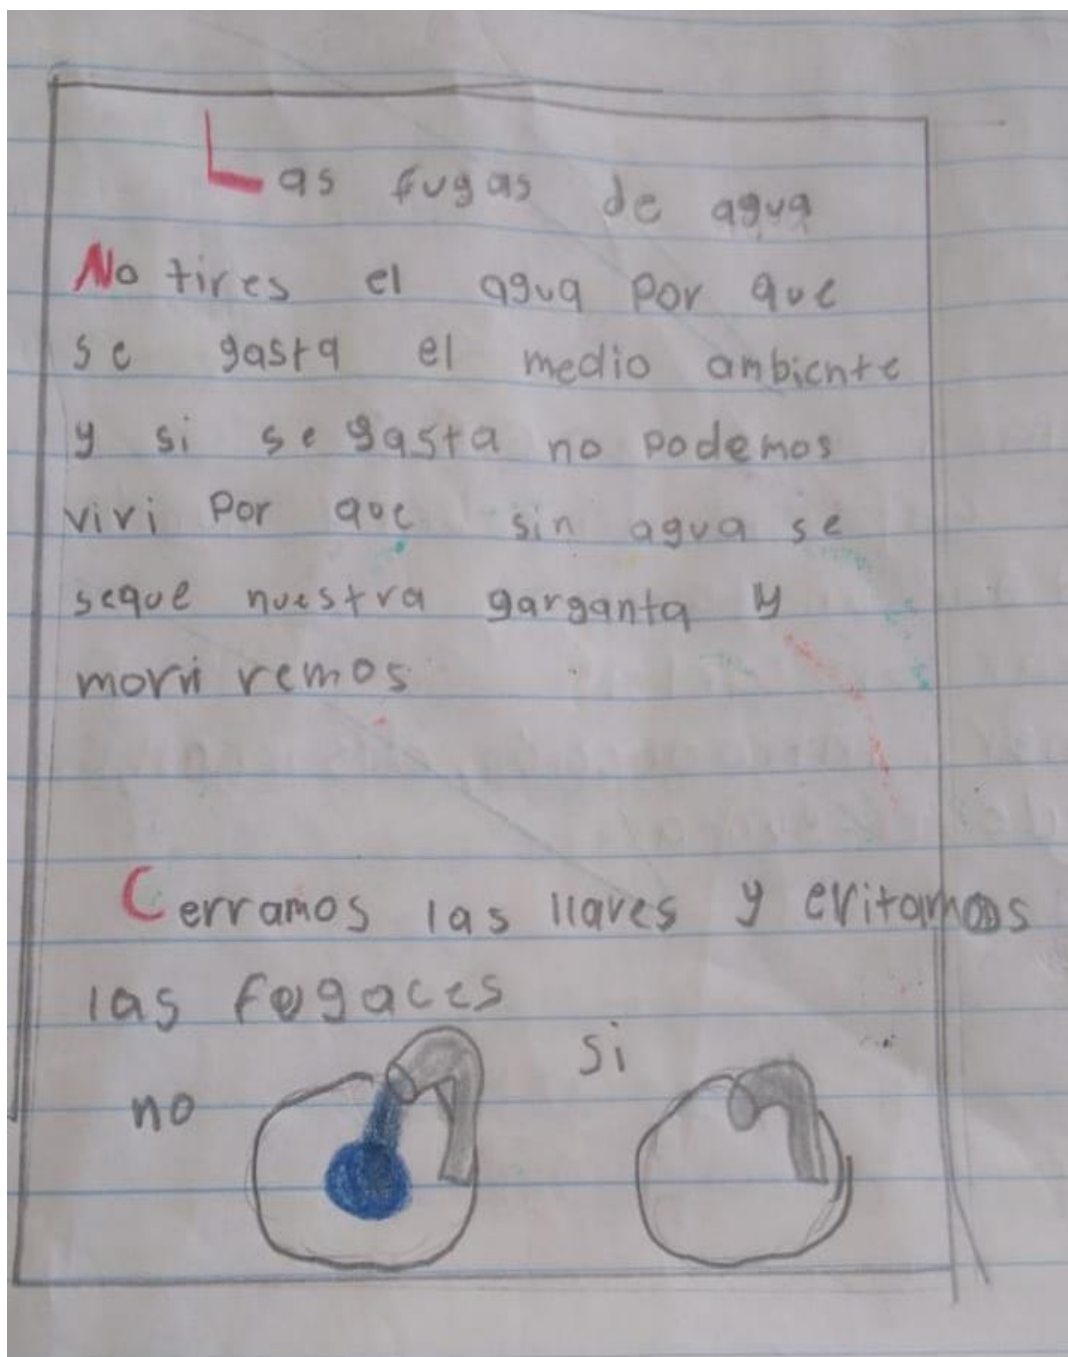 Las fugas de agua
No tires el agua por que
se gasta el medio ambiente
y si se gasta no podemos
vivi por que sin agua se
seque nuestra garganta y
morri remos
Cerramos las llaves y evitamos
las fogaces
si
no